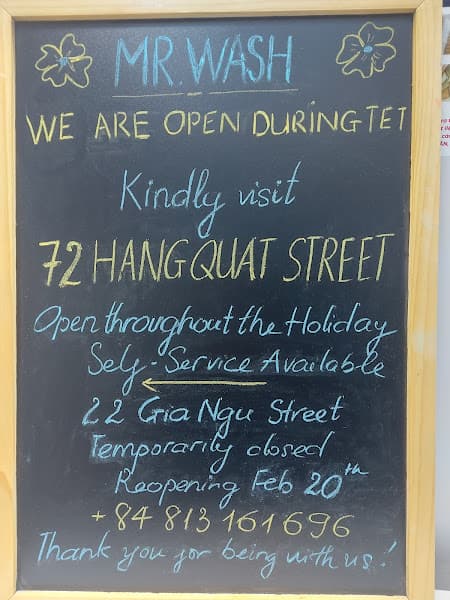 MR. WASH
WE ARE OPEN DURING TET
Kindly visit
72 HANG QUAT STREET
Open throughout the Holiday
Self-Service Available
22 Gia Ngu Street
Temporarily closed
Reopening Feb 20th
+84 813 161 696
Thank you for being with us!